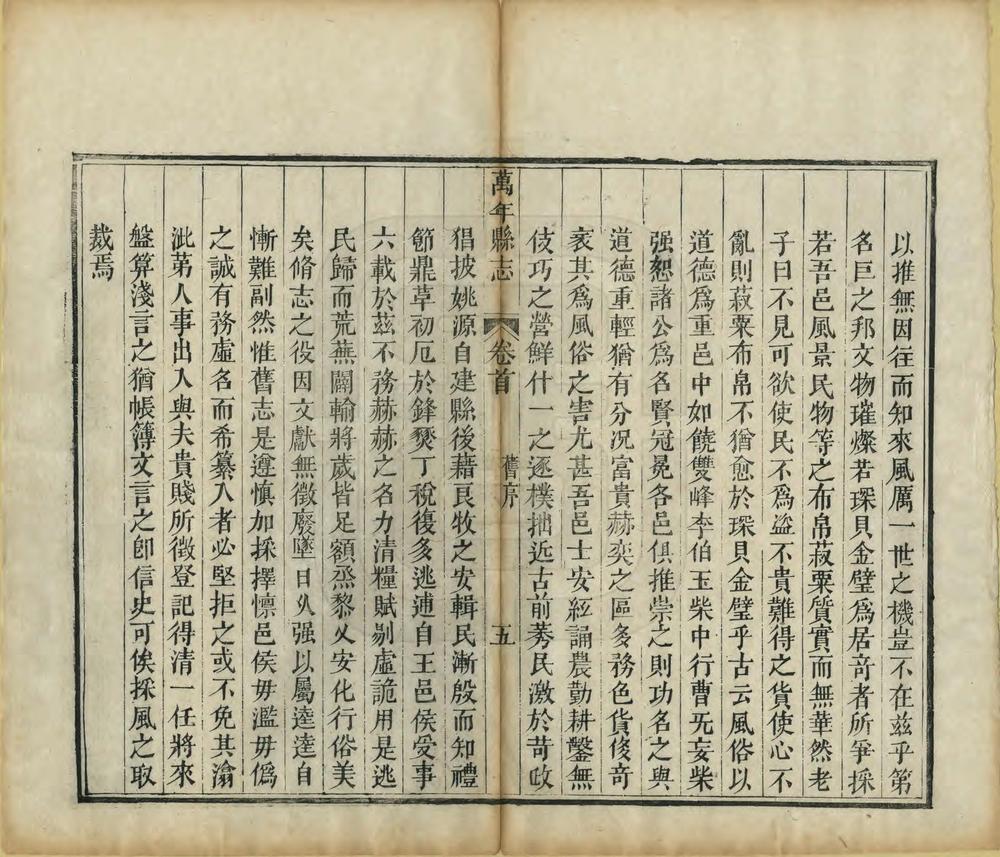 以推無因往而知來風厲一世之機豈不在兹乎第
名巨之邦文物璀燦若琛貝金璧爲居奇者所爭採
若吾邑風景民物等之布帛菽粟質實而無華然老
子曰不見可欲使民不爲盜不貴難得之貨使心不
亂則菽粟布帛不猶愈於琛貝金璧乎古云風俗以
道德爲重邑中如饒雙峰李伯玉柴中行曹旡妄柴
强恕諸公爲名賢冠冕各邑俱推崇之則功名之與
道德重輕猶有分况富貴赫奕之區多務色貨俊奇
袤其爲風俗之害尤甚吾邑士安絃誦農勤耕鑿無
伎巧之營鮮什一之逐樸拙近古前莠民激於苛政
萬年縣志
卷首
舊序
五
猖披姚源自建縣後藉良牧之安輯民漸殷而知禮
節鼎草初厄於鋒燹丁稅復多逃逋自王邑侯受事
六載於茲不務赫赫之名力清糧賦剔虛詭用是逃
民歸而荒蕪闢輸將歲皆足額烝黎乂安化行俗美
矣脩志之役因文獻無徵廢墜日乆强以屬逵逵自
慚難副然惟舊志是遵慎加採擇懔邑侯毋濫毋僞
之誠有務虛名而希纂入者必堅拒之或不免其瀹
泚第人事出入與夫貴賤所徵登記得清一任將來
盤算淺言之猶帳簿文言之卽信史可俟採風之取
裁焉